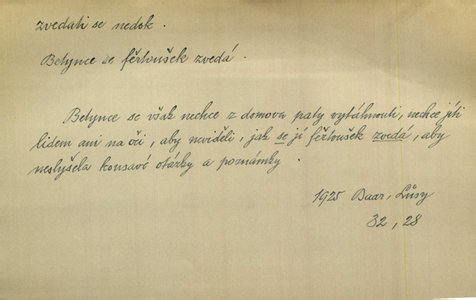 zvedati se nedok.
Betynce se fěrtoušek zvedá.
Betynce se však nechce z domova paty vytáhnouti, nechce jíti
lidem ani na oči, aby neviděli, jak se jí fěrtoušek zvedá, aby
neslyšela kousavé otázky a poznámky.
1925 Baar, Lůsy
32, 28